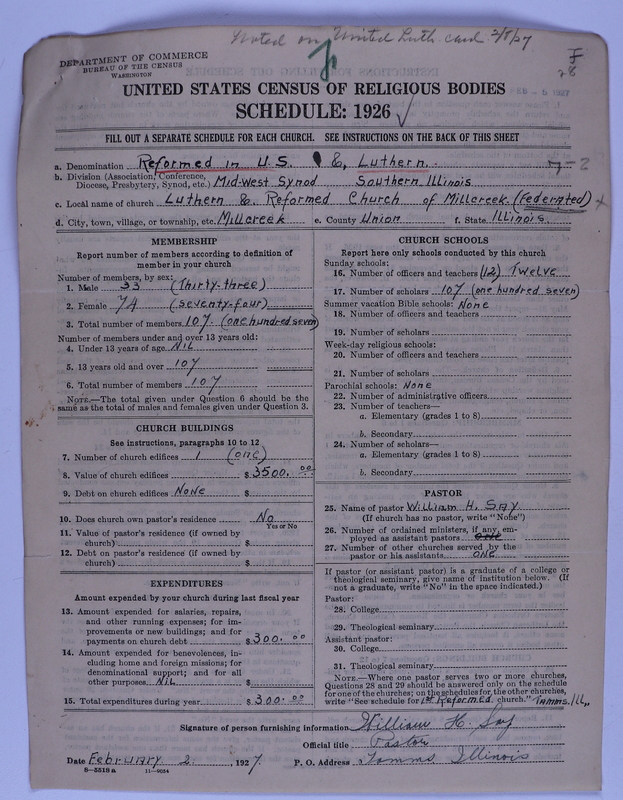 Noted on United Luth. card 2/8/27
DEPARTMENT OF COMMERCE
BUREAU OF THE CENSUS
WASHINGTON
UNITED STATES CENSUS OF RELIGIOUS BODIES
SCHEDULE: 1926
FILL OUT A SEPARATE SCHEDULE FOR EACH CHURCH. SEE INSTRUCTIONS ON THE BACK OF THIS SHEET
a. Denomination Reformed in U.S. &, Luthern. 7-2
b. Division (Association, Conference,
Diocese, Presbytery, Synod, etc.) Mid-West Synod Southern Illinois
c. Local name of church Luthern & Reformed Church of Millcreek (Federated)
d. City, town, village, or township, etc. Millcreek e. County Union f. State Illinois.
MEMBERSHIP
Report number of members according to definition of
member in your church
Number of members, by sex:
1. Male 33 (Thirty-three)
2. Female 74 (seventy-four)
3. Total number of members 107. (one hundred seven)
Number of members under and over 13 years old:
4. Under 13 years of age NIL
5. 13 years old and over 107
6. Total number of members 107
NOTE.—The total given under Question 6 should be the
same as the total of males and females given under Question 3.
CHURCH BUILDINGS
See instructions, paragraphs 10 to 12
7. Number of church edifices 1 (one)
8. Value of church edifices $3500.00
9. Debt on church edifices None $
10. Does church own pastor's residence No
Yes or No
11. Value of pastor's residence (if owned by
church) $
12. Debt on pastor's residence (if owned by
church) $
EXPENDITURES
Amount expended by your church during last fiscal year
13. Amount expended for salaries, repairs,
and other running expenses; for im-
provements or new buildings; and for
payments on church debt $300.00
14. Amount expended for benevolences, in-
cluding home and foreign missions; for
denominational support; and for all
other purposes NIL $
15. Total expenditures during year $300.00
CHURCH SCHOOLS
Report here only schools conducted by this church
Sunday schools:
16. Number of officers and teachers (12) Twelve
17. Number of scholars 107 (one hundred seven)
Summer vacation Bible schools: None
18. Number of officers and teachers
19. Number of scholars
Week-day religious schools:
20. Number of officers and teachers
21. Number of scholars
Parochial schools: None
22. Number of administrative officers
23. Number of teachers—
a. Elementary (grades 1 to 8)
b. Secondary
24. Number of scholars—
a. Elementary (grades 1 to 8)
b. Secondary
PASTOR
25. Name of pastor William H. Say
(If church has no pastor, write "None")
26. Number of ordained ministers, if any, em-
ployed as assistant pastors
27. Number of other churches served by the
pastor or his assistants one
If pastor (or assistant pastor) is a graduate of a college or
theological seminary, give name of institution below. (If
not a graduate, write "No" in the space indicated.)
Pastor:
28. College
29. Theological seminary
Assistant pastor:
30. College
31. Theological seminary
NOTE.—Where one pastor serves two or more churches,
Questions 28 and 29 should be answered only on the schedule
for one of the churches; on the schedules for the other churches,
write "See schedule for 1st Reformed church." Tamms. Ill.,
Signature of person furnishing information William H. Say
Official title Pastor
Date February 2, 1927. P. O. Address Tamms Illinois
8—5518a 11—9054